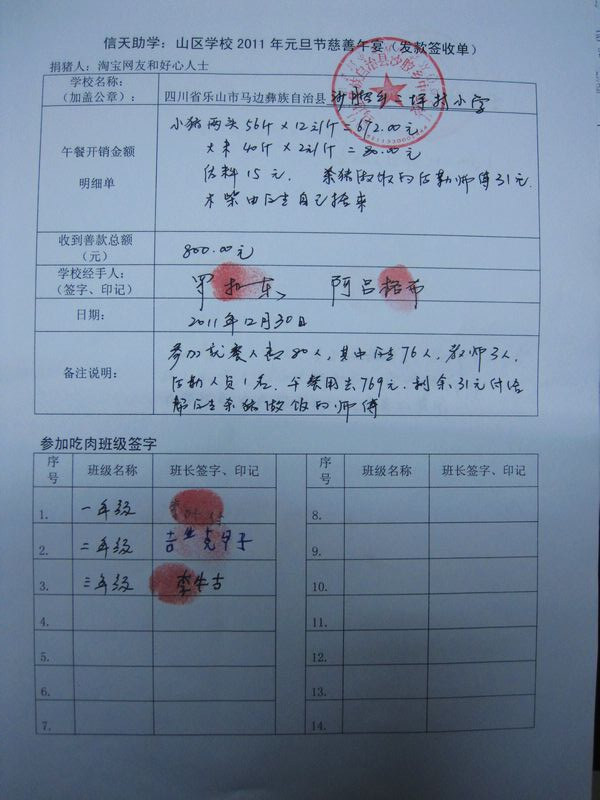 信天助学：山区学校2011年元旦节慈善午宴（发款签收单）
捐猪人：淘宝网友和好心人士
学校名称：
（加盖公章）：
四川省乐山市马边彝族自治县沙腔乡二坪村小学
午餐开销金额
明细单
小猪两头56斤×12元/斤=672.00元
大米40斤×2元/斤=80.00元
佐料15元. 杀猪做饭的后勤师傅31元.
木柴由学生自己捡来
收到善款总额
（元）
800.00元
学校经手人：
（签字、印记）
罗 东 阿吕格布
日期：
2011年12月30日
备注说明：
参加就餐人数80人，其中学生76人，教师3人，
后勤人员1名. 午餐用去769元. 剩余31元付给
帮学生杀猪做饭的师傅
参加吃肉班级签字
序号 班级名称 班长签字、印记 序号 班级名称 班长签字、印记
1. 一年级 8.
2. 二年级 吉 克甲子 9.
3. 三年级 李牛古 10.
4. 11.
5. 12.
6. 13.
7. 14.